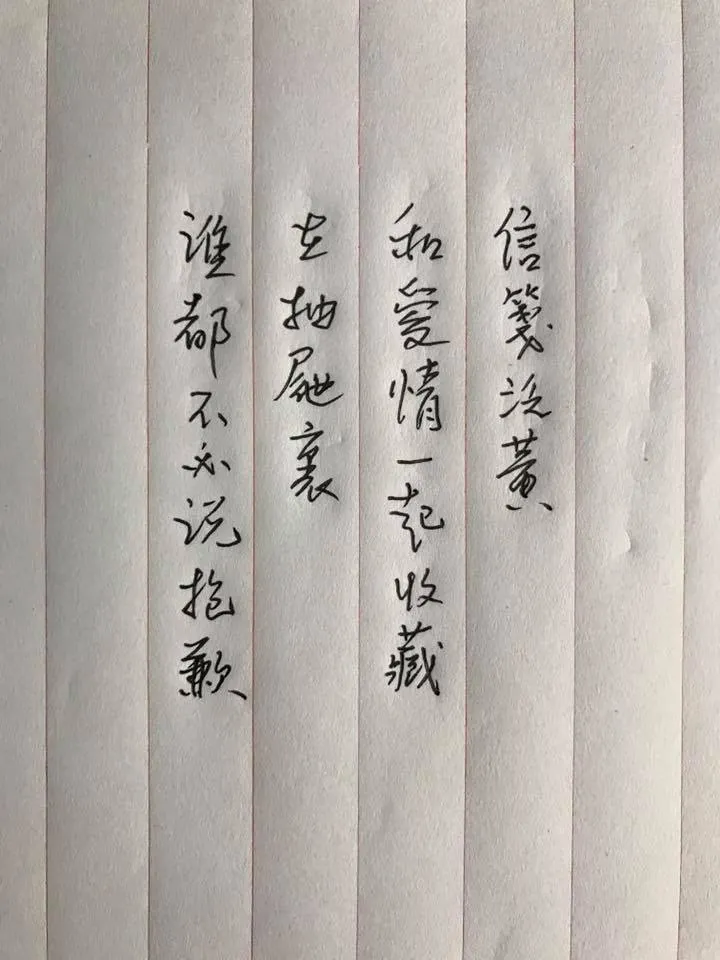 信箋泛黃
和愛情一起收藏
在抽屜裏
誰都不必说抱歉